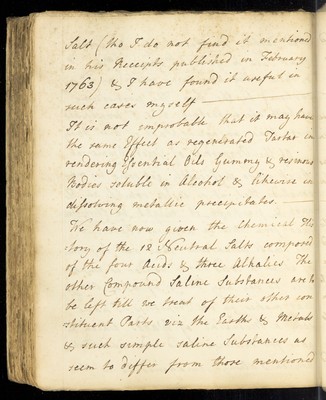 Salt (tho I do not find it mentioned
in his Receipts published in February
1763) & I have found it useful in
such cases myself
It is not improbable that it may have
the same Effect as regenerated Tartar in
rendering Essential Oils Gummy & resinous
Bodies soluble in Alcohol & likewise in
dissolving metallic precipitates.
We have now given the Chemical His
-tory of the 12 Neutral Salts composed
of the four Acids & three Alkalies. The
other Compound Saline Substances are to
be left till we treat of their other con
-stituent Parts. viz the Earths & Metals
& such simple saline Substances as
seem to differ from those mentioned